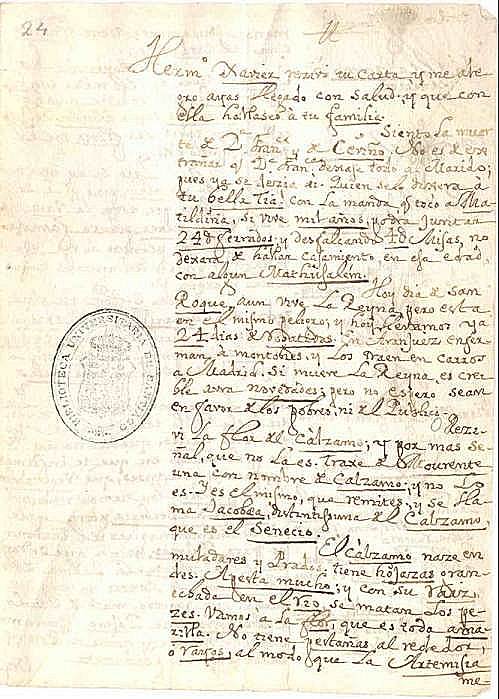 24
Hermo Xavier rezivi tu Carta, y me ale
gro ayas llegado con salud, y que con
ella hallases a tu familia.
Siento la muer
te de Da Franca y de Cerviño. No es de es
trañar qe Da Franca dexaje todo al Marido;
pues ya se dezia de: Quien se lo dixera a
tu bella Tia. con la manda qe toco a Ma
tildiña, si vive mil años, podra juntar
24 ds ferrados; y desfalcando 4 ds Misas, no
dexara de hallar casamiento, en esa edad,
con algun Mathusalem.
Hoy dia de San
Roque, aun vive la Reyna, pero esta
en el mismo peligro; y hoy contamos ya
24 dias de
En Aranjuez enfer
man de montones, y los traen en carros
a Madrid. Si muere la Reyna es crei
ble avra novedades; pero no espero sean
en favor de los pobres, ni del Publico.
Rezi
vi la flor del Cálzamo; y por mas Se
ñal, que no la es. Traxe de Mourente
una con nombre de Calzamo; y no lo
es. Y es el mismo, que remites, y se lla
ma Jacobea, distintissima del Calzamo,
que es el Senecio.
El Calzamo nasze en
muladares y Prados: tiene hojazas gran
des. Apesta mucho; y con su raiz,
echada en el rio, se matan los pe
zes. Vamos a la flor, que es toda ama
rilla. No tiene pestañas al rededor,
o rayos, al modo que la Artemisia
me-
BIBLIOTECA UNIVERSITARIA DE